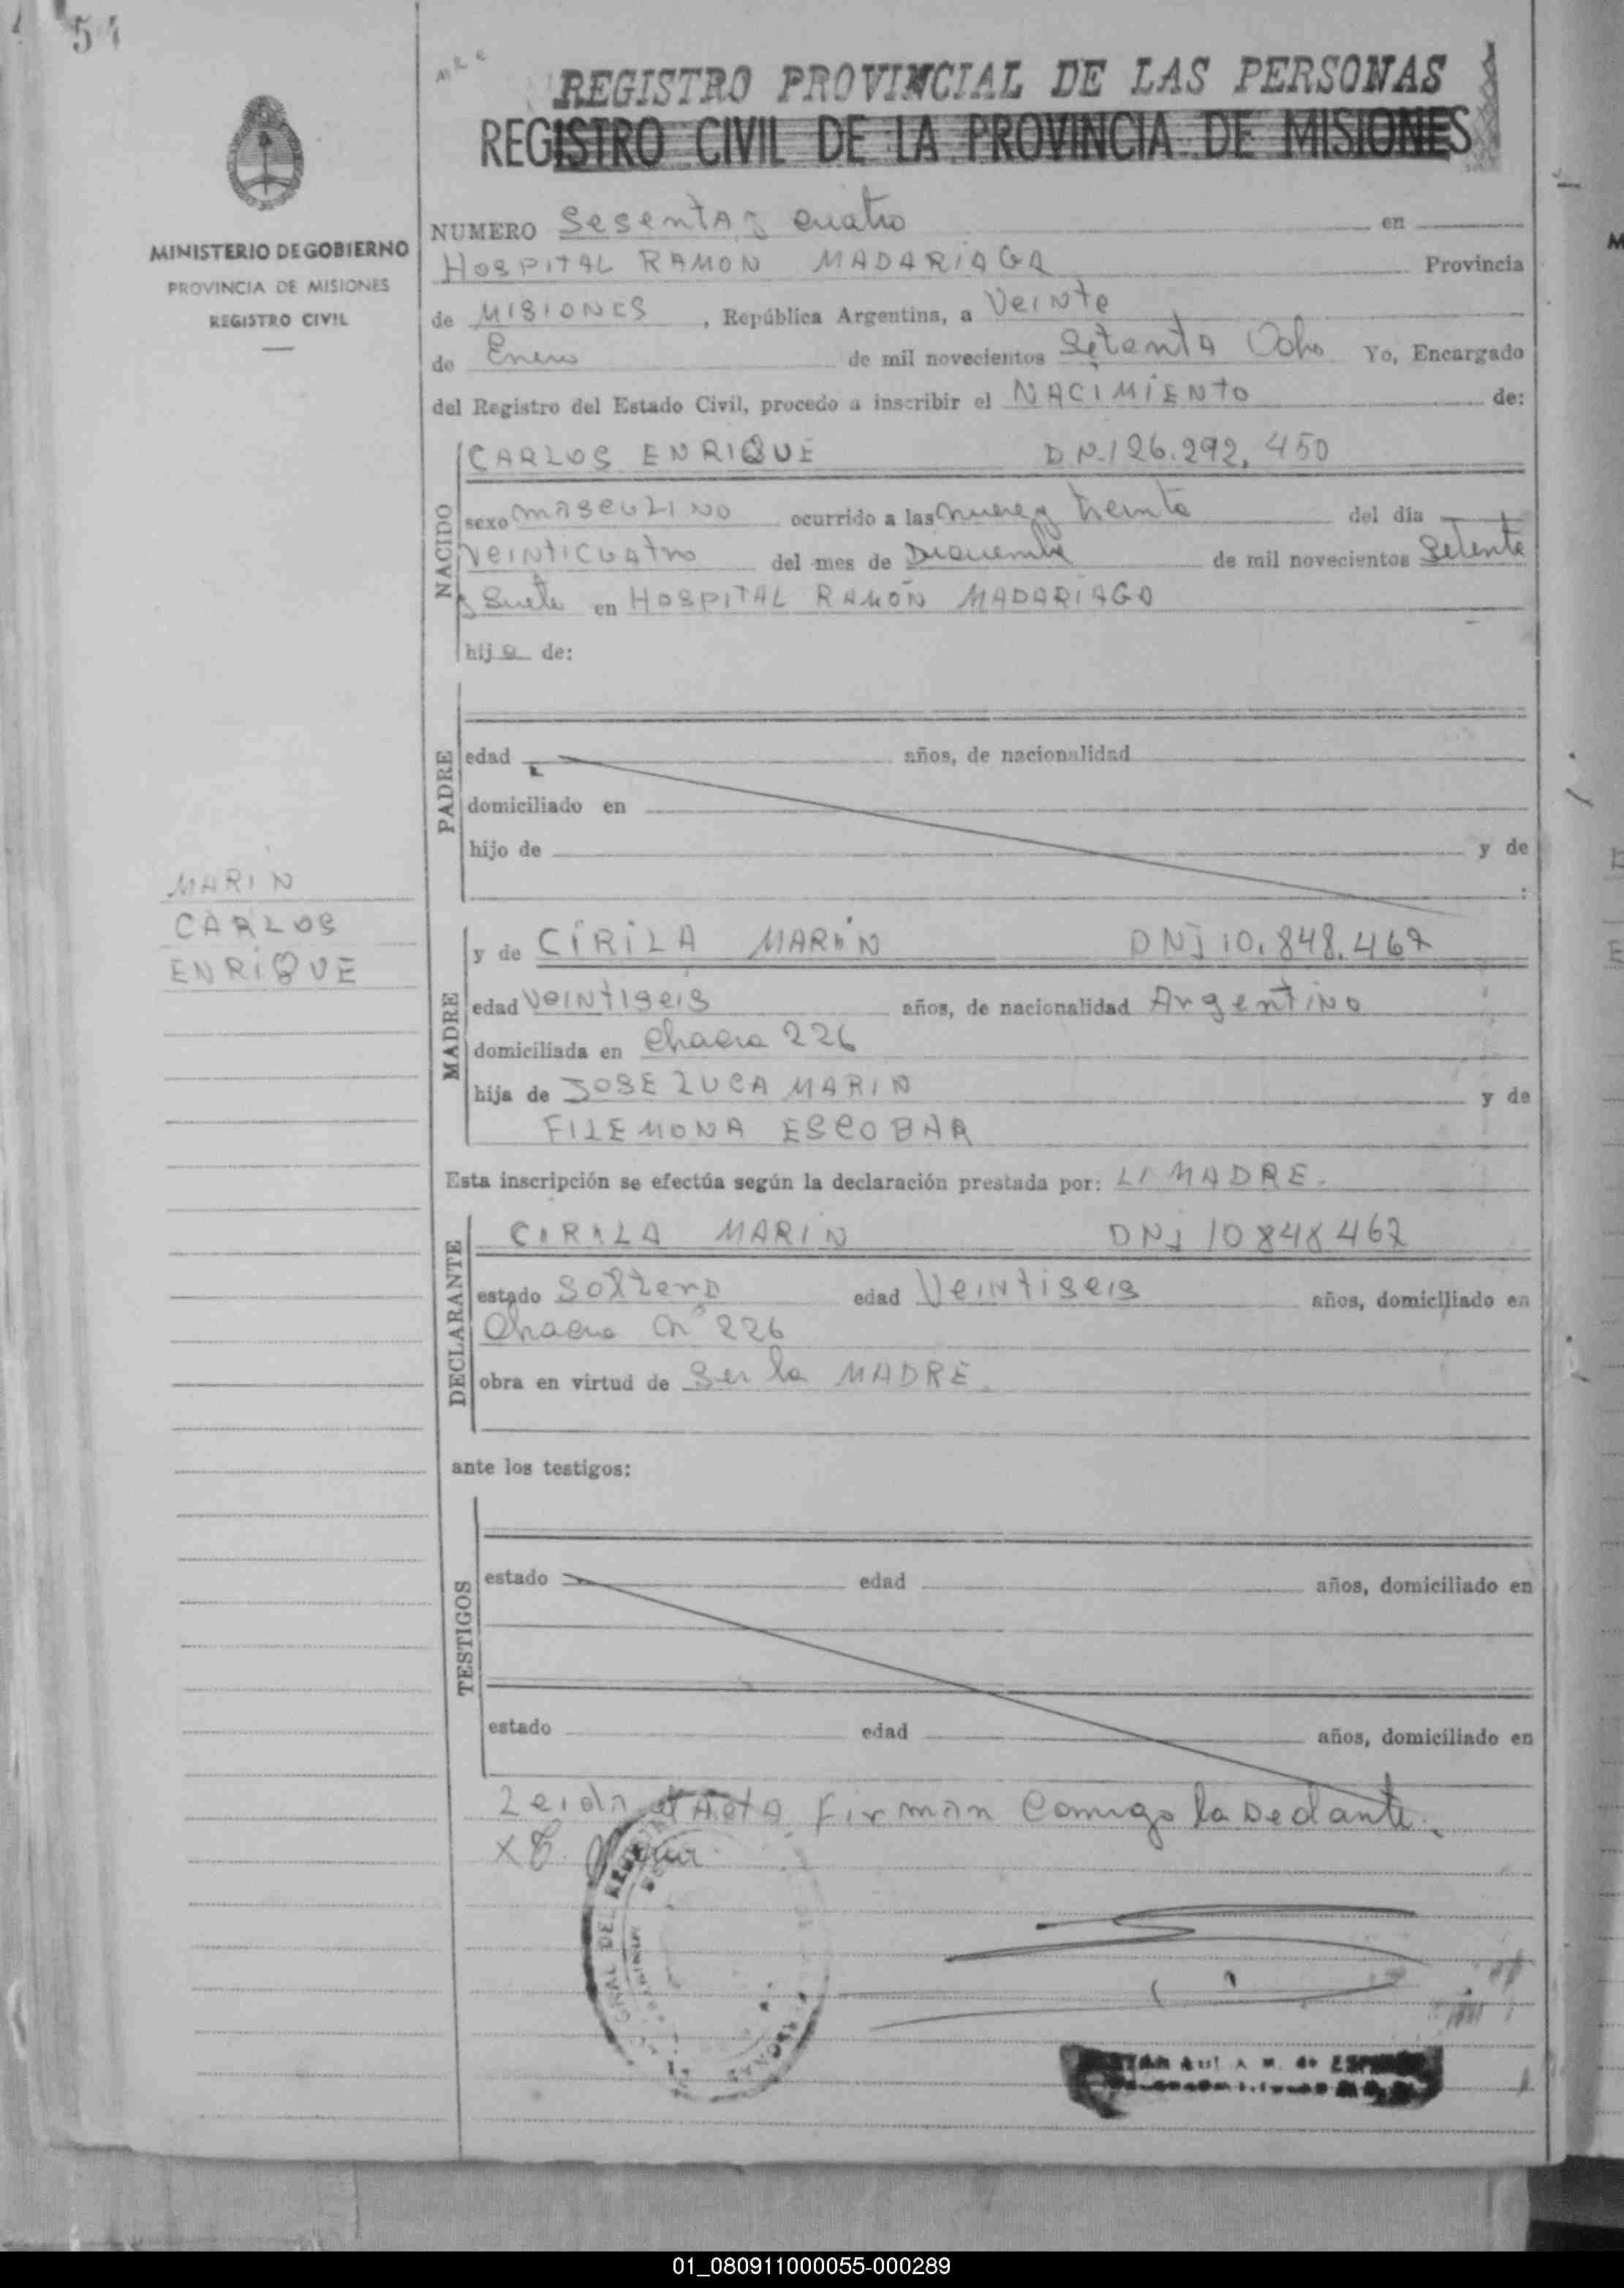 54
REGISTRO PROVINCIAL DE LAS PERSONAS
REGISTRO CIVIL DE LA PROVINCIA DE MISIONES
MINISTERIO DE GOBIERNO
PROVINCIA DE MISIONES
REGISTRO CIVIL
NUMERO Sesenta y cuatro en
HOSPITAL RAMON MADARIAGA Provincia
de MISIONES, República Argentina, a Veinte
de Enero de mil novecientos Setenta Ocho Yo, Encargado
del Registro del Estado Civil, procedo a inscribir el NACIMIENTO de:
NACIDO
CARLOS ENRIQUE DNI 26.292.450
sexo MASCULINO ocurrido a las nueve y treinta del día
VEINTICUATRO del mes de Diciembre de mil novecientos Setenta
y Siete en HOSPITAL RAMÓN MADARIAGA
hijo de:
PADRE
edad años, de nacionalidad
domiciliado en
hijo de y de
:
MARIN
CARLOS
ENRIQUE
MADRE
y de CIRILA MARIN DNI 10.848.467
edad VEINTISEIS años, de nacionalidad Argentina
domiciliada en Chacra 226
hija de JOSE LUCA MARIN y de
FILEMONA ESCOBAR
Esta inscripción se efectúa según la declaración prestada por: LA MADRE.
DECLARANTE
CIRILA MARIN DNI 10848467
estado Soltera edad Veintiseis años, domiciliado en
Chacra Nº 226
obra en virtud de Ser la MADRE.
ante los testigos:
TESTIGOS
estado edad años, domiciliado en
estado edad años, domiciliado en
Leida el Acta Firman Conmigo la Declante.
01_080911000055-000289